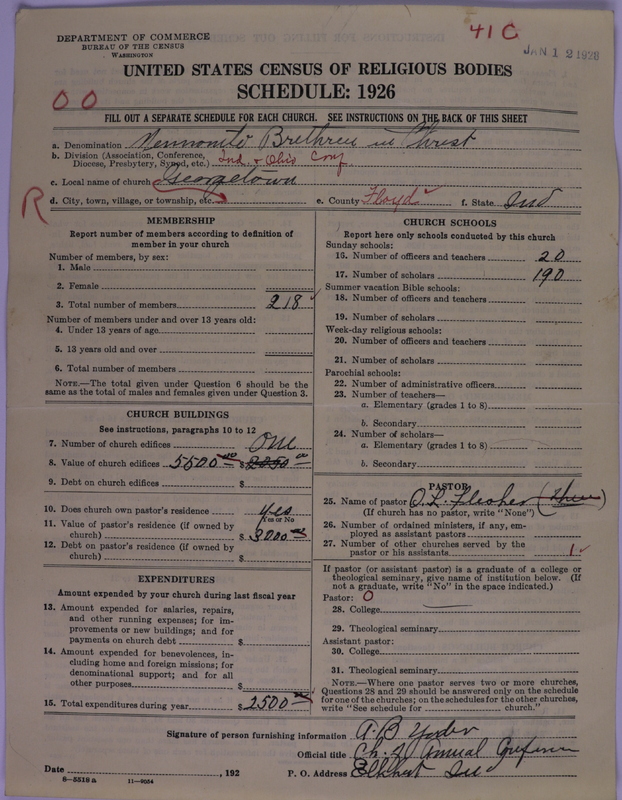 DEPARTMENT OF COMMERCE
BUREAU OF THE CENSUS
WASHINGTON
41C
JAN 12 1928
UNITED STATES CENSUS OF RELIGIOUS BODIES
SCHEDULE: 1926
00
FILL OUT A SEPARATE SCHEDULE FOR EACH CHURCH. SEE INSTRUCTIONS ON THE BACK OF THIS SHEET
a. Denomination Mennonite Brethren in Christ
b. Division (Association, Conference, Diocese, Presbytery, Synod, etc.) Ind + Ohio Conf
c. Local name of church Georgetown
R
d. City, town, village, or township, etc. e. County Floyd f. State Ind
MEMBERSHIP
Report number of members according to definition of
member in your church
Number of members, by sex:
1. Male
2. Female
3. Total number of members 218
Number of members under and over 13 years old:
4. Under 13 years of age
5. 13 years old and over
6. Total number of members
NOTE.—The total given under Question 6 should be the
same as the total of males and females given under Question 3.
CHURCH BUILDINGS
See instructions, paragraphs 10 to 12
7. Number of church edifices One
8. Value of church edifices 5500 00 $
9. Debt on church edifices $
10. Does church own pastor's residence yes
(Yes or No
11. Value of pastor's residence (if owned by
church) $ 3000
12. Debt on pastor's residence (if owned by
church) $
EXPENDITURES
Amount expended by your church during last fiscal year
13. Amount expended for salaries, repairs,
and other running expenses; for im-
provements or new buildings; and for
payments on church debt $
14. Amount expended for benevolences, in-
cluding home and foreign missions; for
denominational support; and for all
other purposes $
15. Total expenditures during year $ 2500
CHURCH SCHOOLS
Report here only schools conducted by this church
Sunday schools:
16. Number of officers and teachers 20
17. Number of scholars 190
Summer vacation Bible schools:
18. Number of officers and teachers
19. Number of scholars
Week-day religious schools:
20. Number of officers and teachers
21. Number of scholars
Parochial schools:
22. Number of administrative officers
23. Number of teachers—
a. Elementary (grades 1 to 8)
b. Secondary
24. Number of scholars—
a. Elementary (grades 1 to 8)
b. Secondary
PASTOR
25. Name of pastor
(If church has no pastor, write "None")
26. Number of ordained ministers, if any, em-
ployed as assistant pastors
27. Number of other churches served by the
pastor or his assistants 1
If pastor (or assistant pastor) is a graduate of a college or
theological seminary, give name of institution below. (If
not a graduate, write "No" in the space indicated.)
Pastor: 0
28. College
29. Theological seminary
Assistant pastor:
30. College
31. Theological seminary
NOTE.—Where one pastor serves two or more churches,
Questions 28 and 29 should be answered only on the schedule
for one of the churches; on the schedules for the other churches,
write "See schedule for church."
Signature of person furnishing information A. B. Yoder
Official title Ch. of Annual Conference
Date , 192 P. O. Address Elkhart Ind
8—5518 a 11—9034